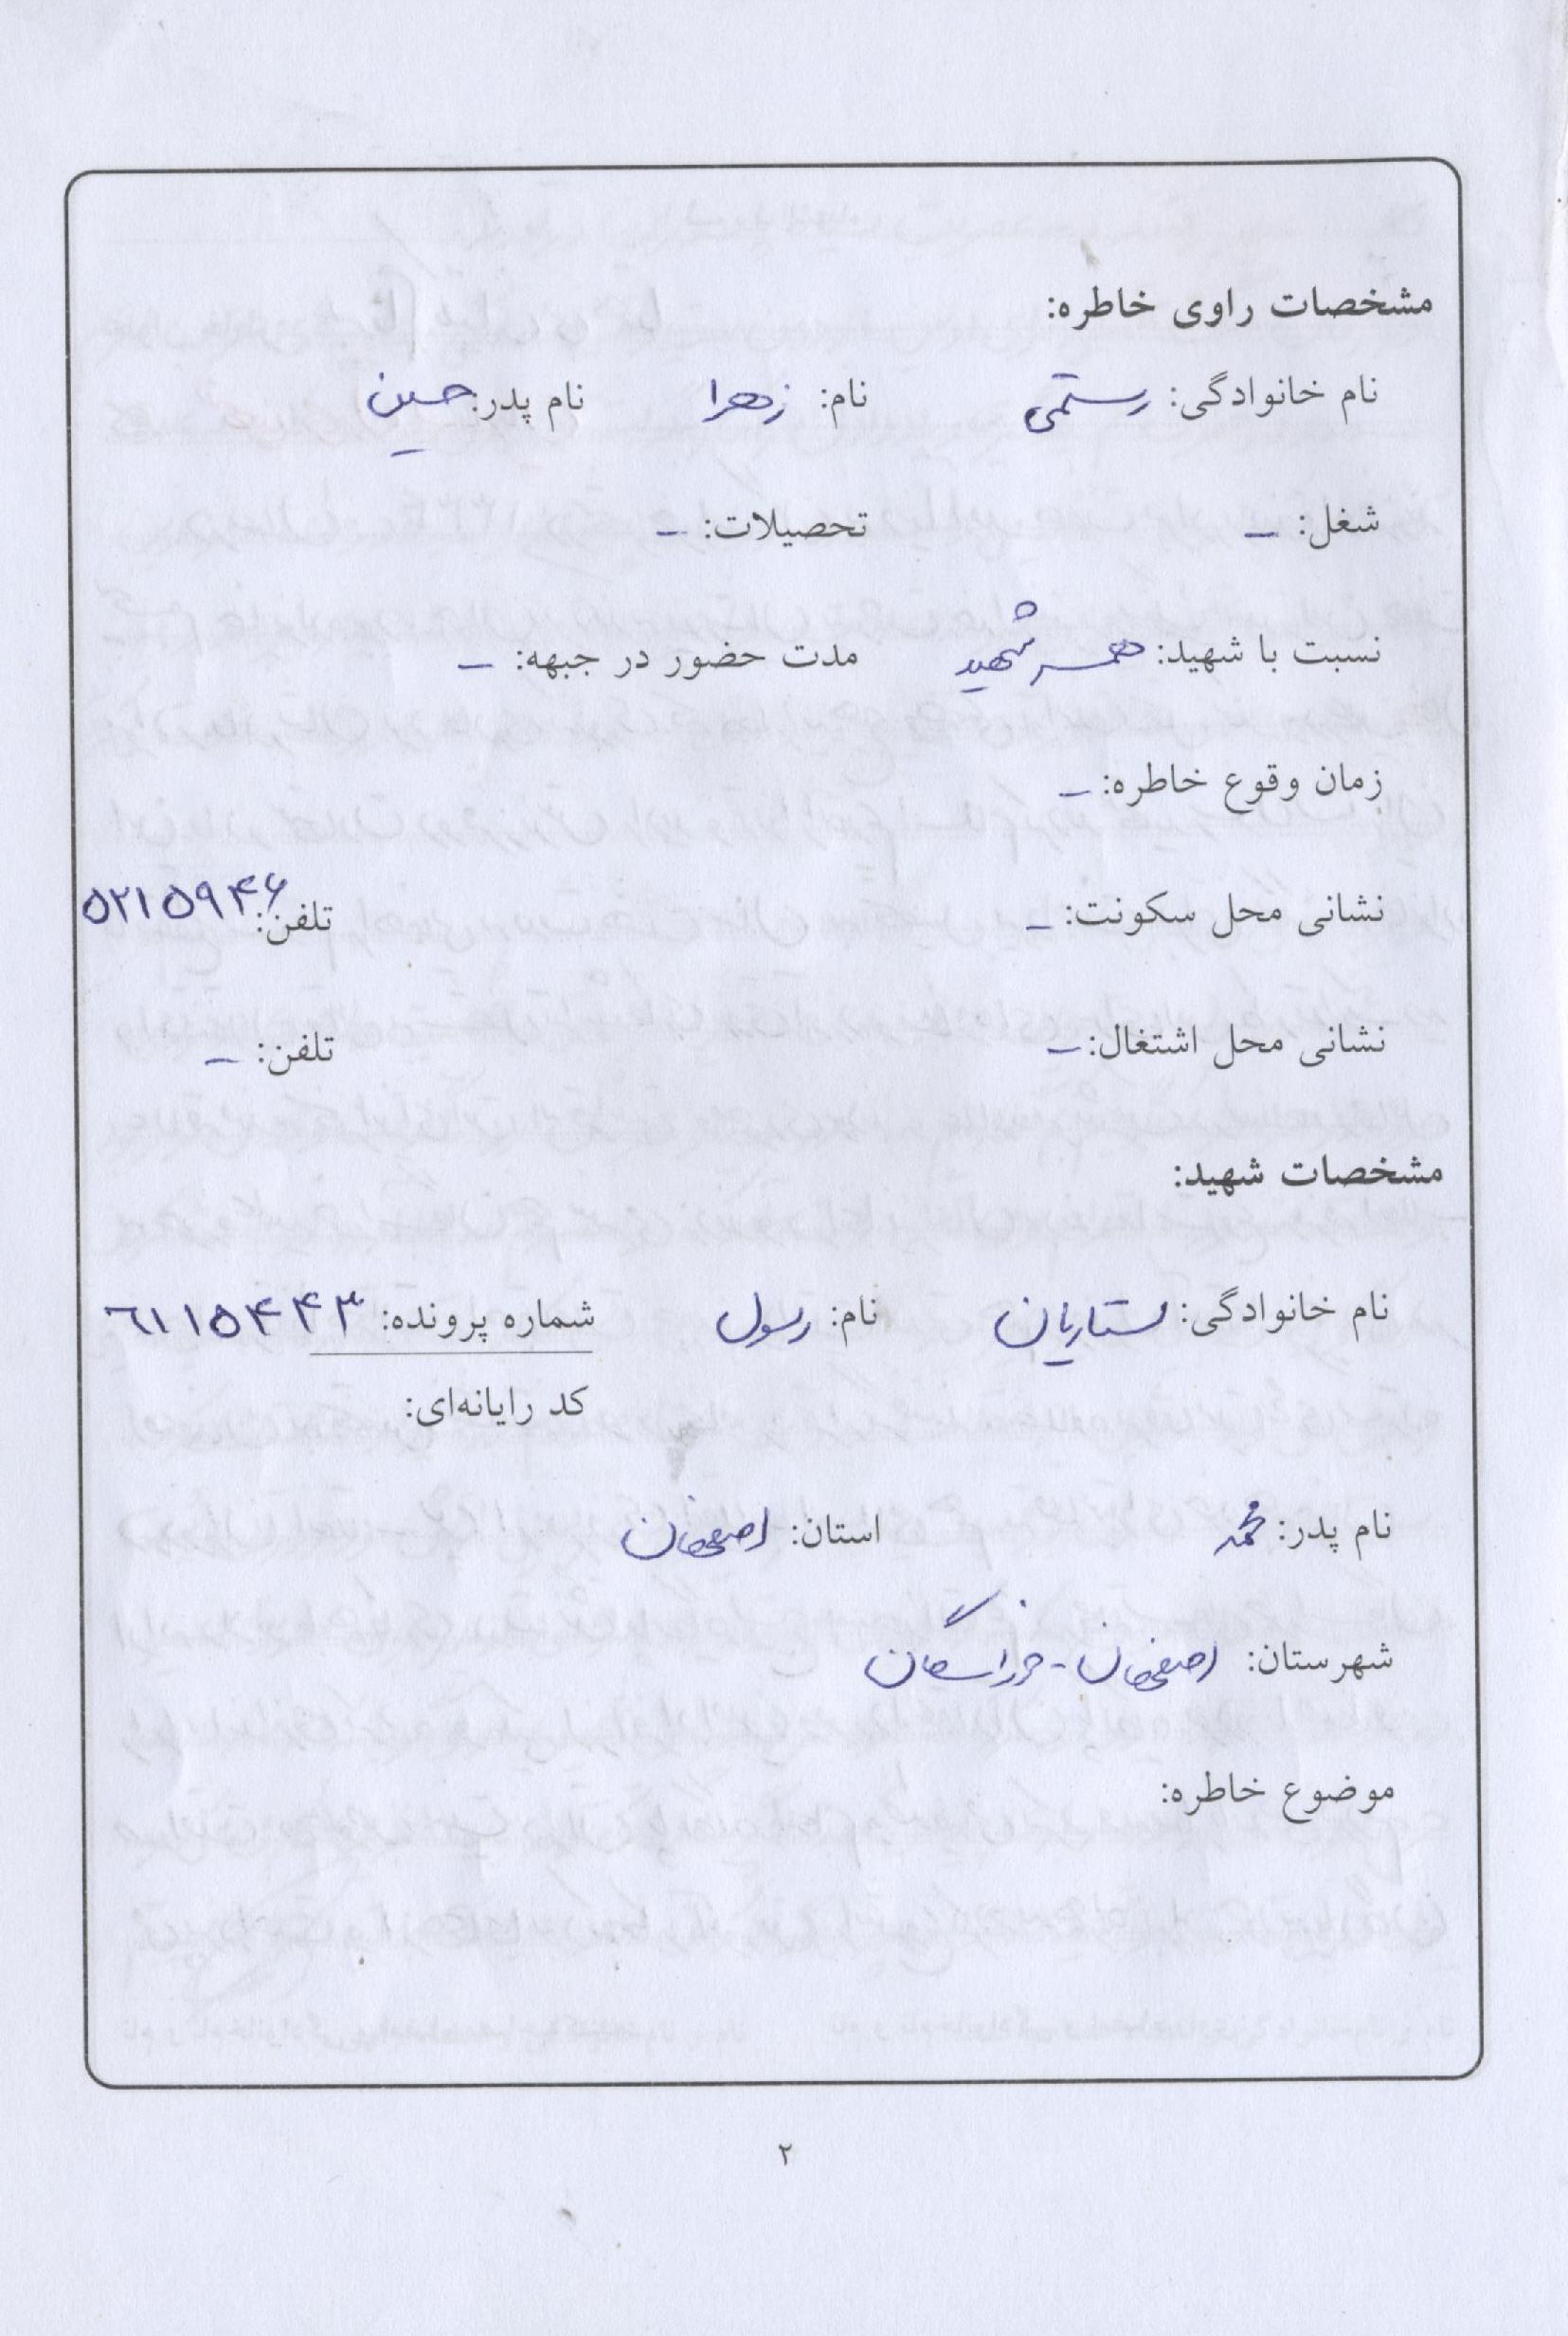 مشخصات راوی خاطره:
نام خانوادگی: رستمی نام: زهرا نام پدر: حسین
شغل: – تحصیلات: –
نسبت با شهید: همسر شهید مدت حضور در جبهه: –
زمان وقوع خاطره: –
نشانی محل سکونت: – تلفن: ۵۲۱۵۹۴۶
نشانی محل اشتغال: – تلفن: –
مشخصات شهید:
نام خانوادگی: ستاریان نام: رسول شماره پرونده: ۶۱۱۵۴۴۳
کد رایانه‌ای:
نام پدر: محمد استان: اصفهان
شهرستان: اصفهان - خوراسگان
موضوع خاطره:
۲